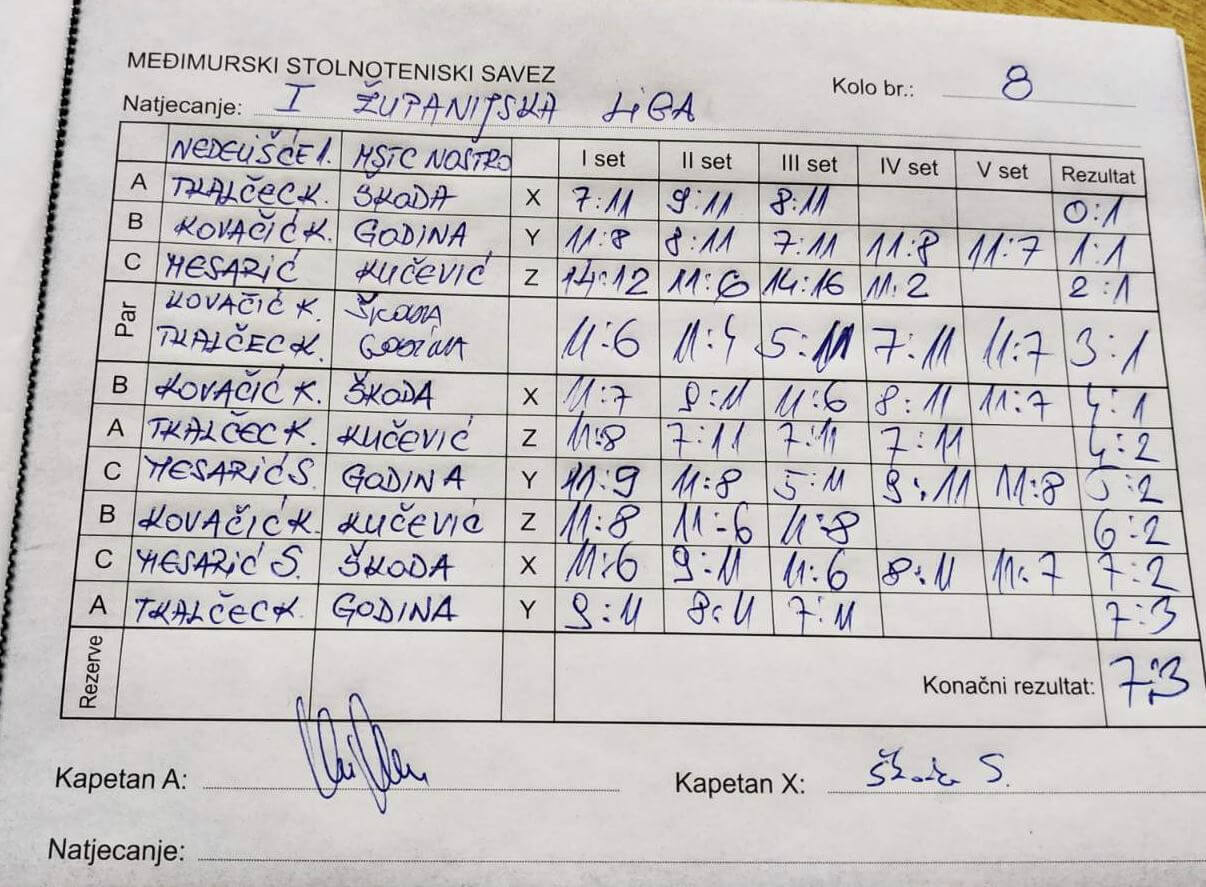 MEĐIMURSKI STOLNOTENISKI SAVEZ
Kolo br.: 8
Natjecanje: I ŽUPANIJSKA LIGA
NEDELIŠĆE 1. MSTC NOSTRO I set II set III set IV set V set Rezultat
A TKALČEC K. ŠKODA X 7:11 9:11 8:11 0:1
B KOVAČIĆ K. GODINA Y 11:8 8:11 7:11 11:8 11:7 1:1
C MESARIĆ KUČEVIĆ Z 14:12 11:6 14:16 11:2 2:1
Par KOVAČIĆ K. ŠKODA
TKALČEC K. GODINA 11:6 11:4 5:11 7:11 11:7 3:1
B KOVAČIĆ K. ŠKODA X 11:7 9:11 11:6 8:11 11:7 4:1
A TKALČEC K. KUČEVIĆ Z 11:8 7:11 7:11 7:11 4:2
C MESARIĆ S. GODINA Y 11:9 11:8 5:11 9:11 11:8 5:2
B KOVAČIĆ K. KUČEVIĆ Z 11:8 11-6 11:8 6:2
C MESARIĆ S. ŠKODA X 11:6 9:11 11:6 8:11 11:7 7:2
A TKALČEC K. GODINA Y 9:11 8:11 7:11 7:3
Rezerve Konačni rezultat: 7:3
Kapetan A: Kapetan X: Škoda S.
Natjecanje: